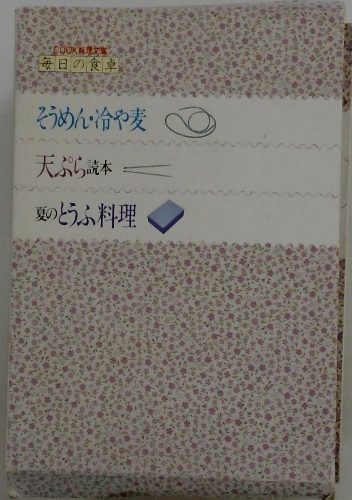 COOK料理文庫
毎日の食卓
そうめん・冷や麦
天ぷら読本
夏のとうふ料理